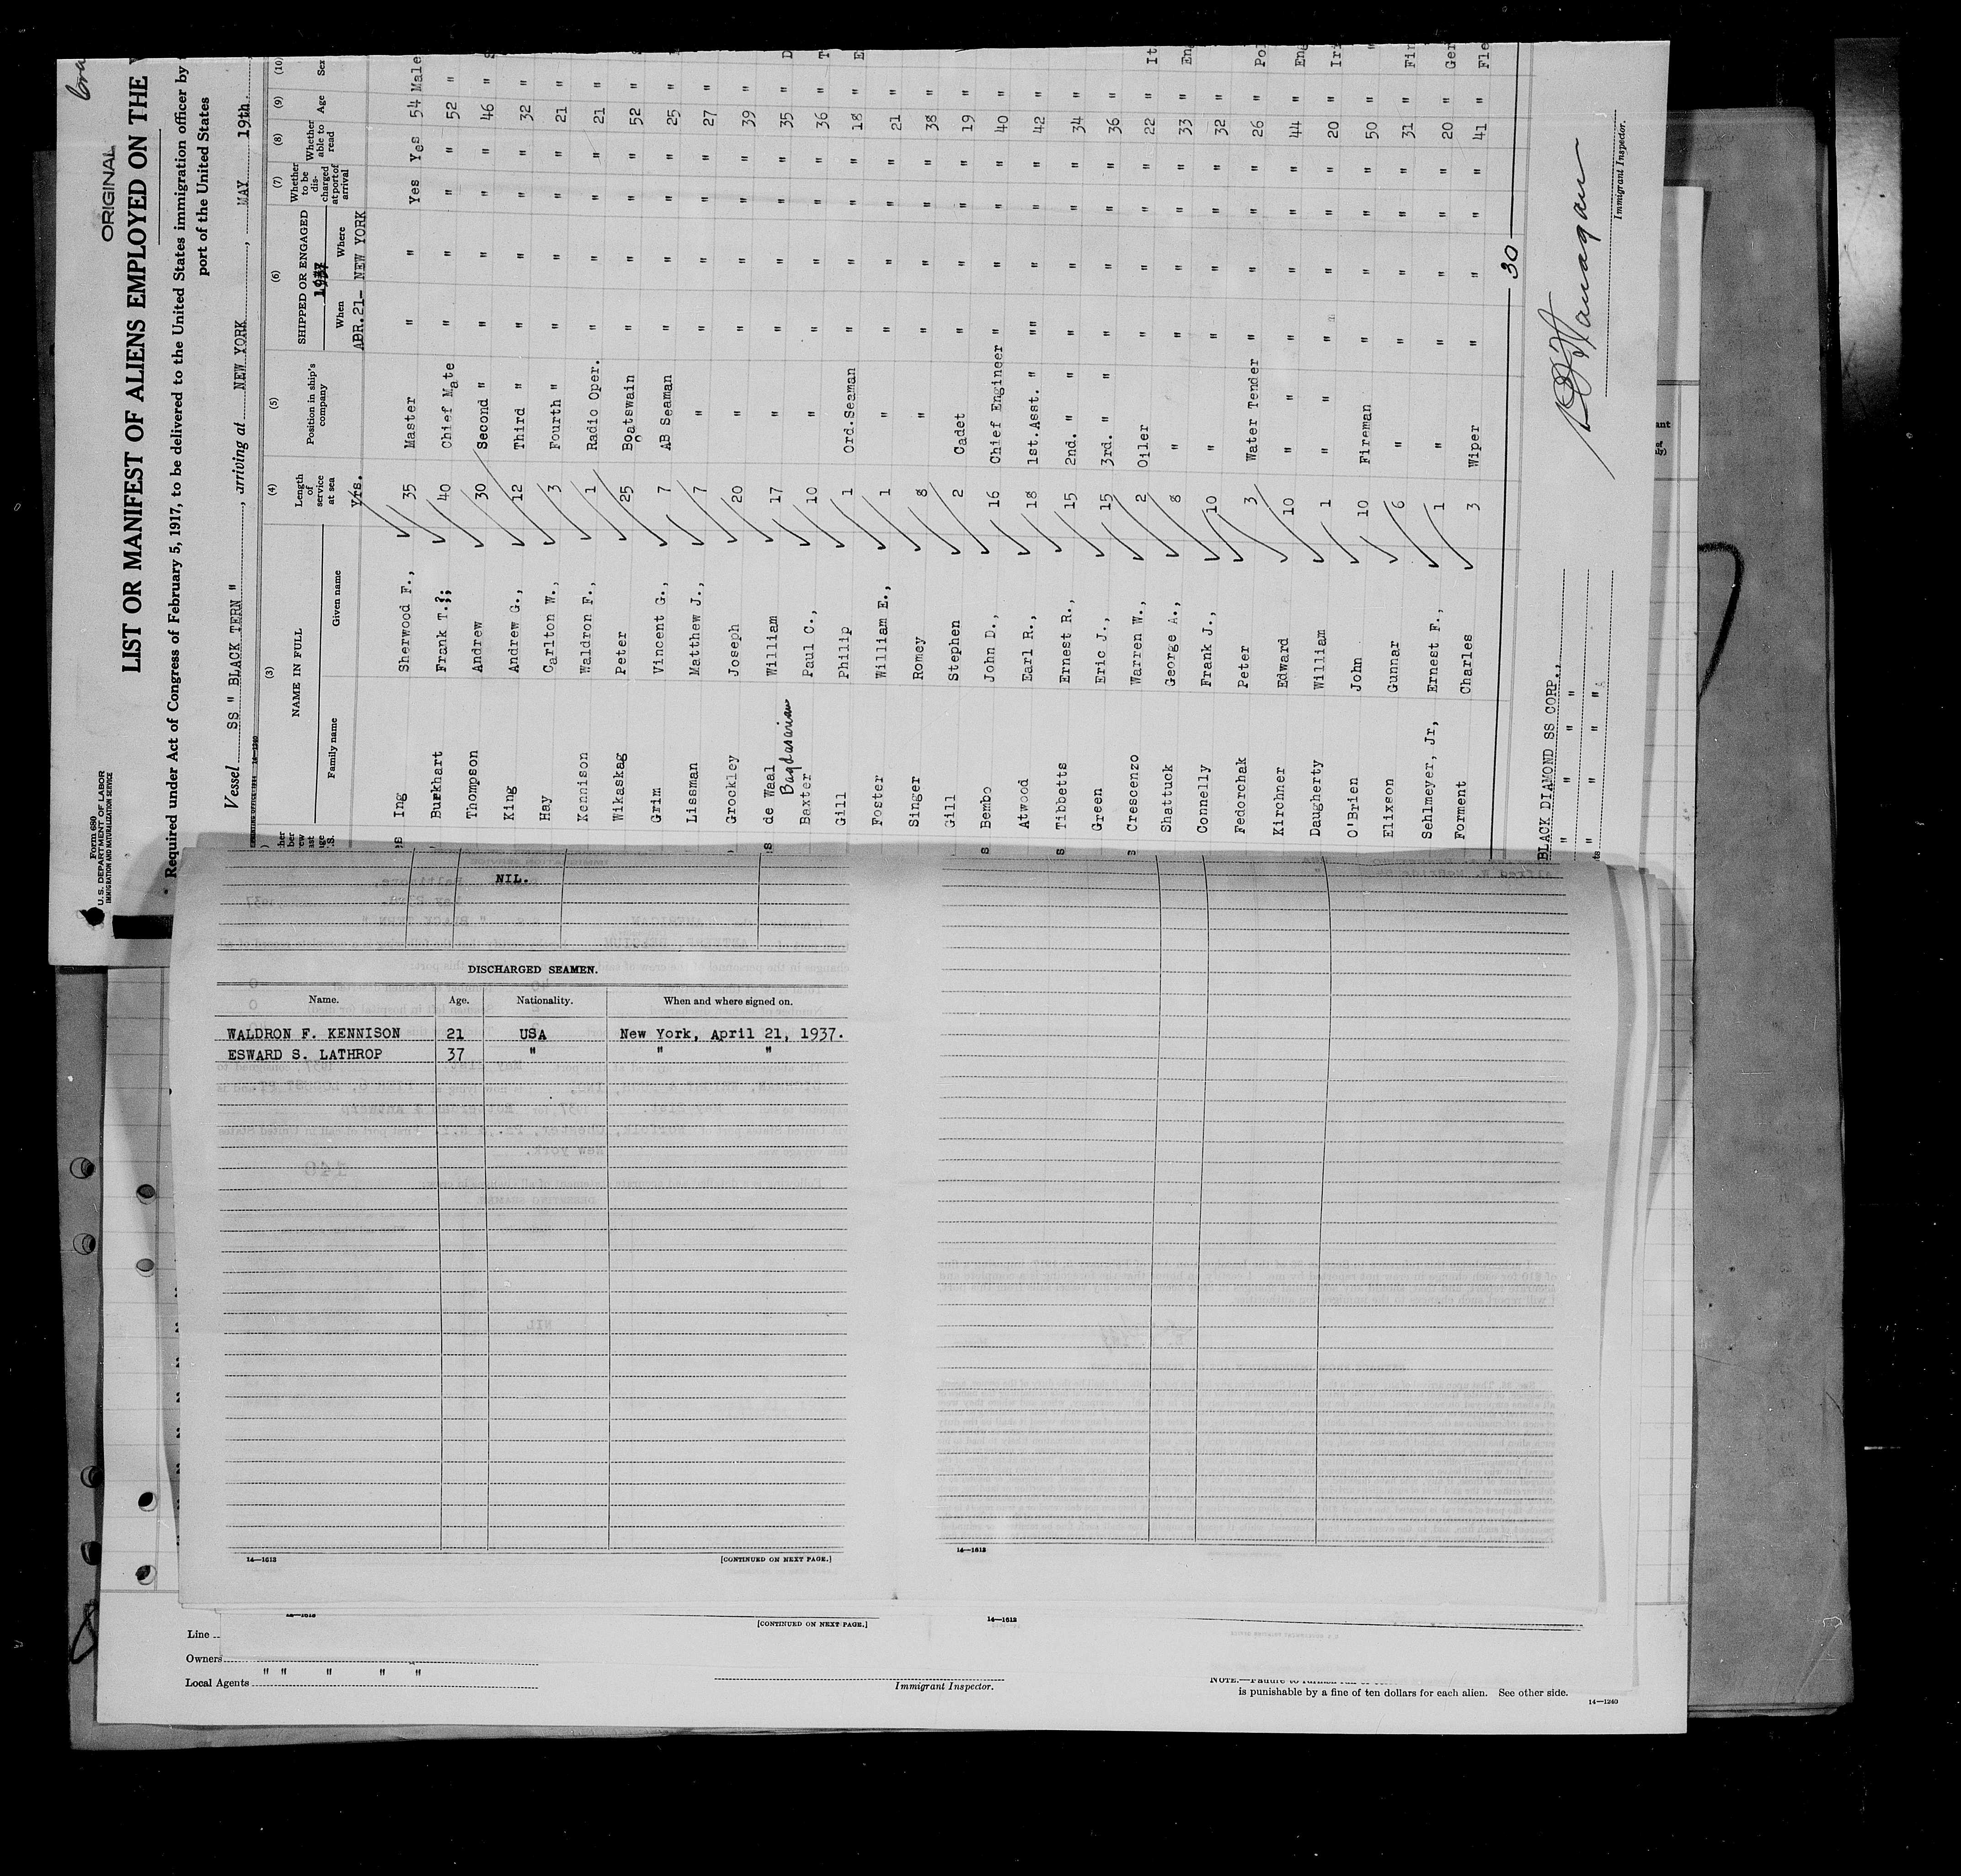 Form 680
U. S. DEPARTMENT OF LABOR
IMMIGRATION AND NATURALIZATION SERVICE
ORIGINAL
LIST OR MANIFEST OF ALIENS EMPLOYED ON THE
Required under Act of Congress of February 5, 1917, to be delivered to the United States immigration officer by
port of the United States
Vessel SS " BLACK TERN ", arriving at NEW YORK, MAY 19th
(3) (4) (5) (6) (7) (8) (9) (10)
NAME IN FULL Length of service at sea Position in ship's company SHIPPED OR ENGAGED Whether to be discharged at port of arrival Whether able to read Age Sex
Family name Given name When Where
1937
Yrs. ABR.21- NEW YORK
Ing Sherwood F., 35 Master " " Yes Yes 54 Male
Burkhart Frank T.,; 40 Chief Mate " " " " 52 "
Thompson Andrew 30 Second " " " " " 46 "
King Andrew G., 12 Third " " " " " 32 "
Hay Carlton W., 3 Fourth " " " " " 21 "
Kennison Waldron F., 1 Radio Oper. " " " " 21 "
Wikaskag Peter 25 Boatswain " " " " 52 "
Grim Vincent G., 7 AB Seaman " " " " 25 "
Lissman Matthew J., 7 " " " " " 27 "
Grockley Joseph 20 " " " " " 39 "
de Waal William 17 " " " " " 35 " D
Bagdasarian
Baxter Paul C., 10 " " " " " 36 " T
Gill Philip 1 Ord.Seaman " " " " 18 " E
Foster William E., 1 " " " " " 21 "
Singer Romey 8 " " " " " 38 "
Gill Stephen 2 Cadet " " " " 19 "
Bembo John D., 16 Chief Engineer " " " " 40 "
Atwood Earl R., 18 1st.Asst. " "" " " " 42 "
Tibbetts Ernest R., 15 2nd. " " " " " 34 "
Green Eric J., 15 3rd. " " " " " 36 "
Crescenzo Warren W., 2 Oiler " " " " 22 " It
Shattuck George A., 8 " " " " " 33 " En
Connelly Frank J., 10 " " " " " 32 "
Fedorchak Peter 3 Water Tender " " " " 26 " Pol
Kirchner Edward 10 " " " " " 44 " Eng
Daugherty William 1 " " " " " 20 " Iri
O'Brien John 10 Fireman " " " " 50 " "
Elixson Gunnar 6 " " " " " 31 " Fin
Sehlmeyer, Jr, Ernest F., 1 " " " " " 20 " Ger
Forment Charles 3 Wiper " " " " 41 " Fle
30
BLACK DIAMOND SS CORP.,
" " " "
" " " "
Immigrant Inspector.
NIL.
DISCHARGED SEAMEN.
Name. Age. Nationality. When and where signed on.
WALDRON F. KENNISON 21 USA New York, April 21, 1937.
ESWARD S. LATHROP 37 " " "
14—1613 [CONTINUED ON NEXT PAGE.]
14—1613
[CONTINUED ON NEXT PAGE.]
14—1613
Line
Owners
" " " " "
Local Agents
Immigrant Inspector.
is punishable by a fine of ten dollars for each alien. See other side.
14—1240